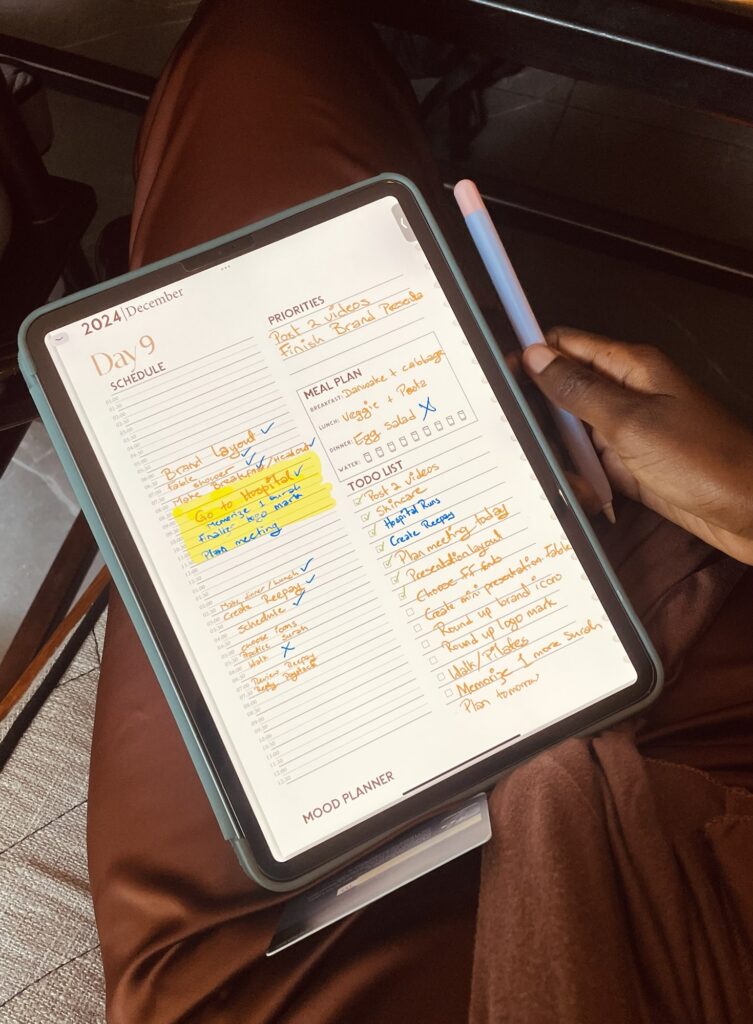 2024|December
Day 9
SCHEDULE
Brand layout ✓
Table shower ✓
Make Breakfast/Headout ✓
Go to Hospital ✓
Memorize 1 surah
finalize logo mark
Plan meeting
Make dinner/lunch ✓
Create Reepay ✓
Schedule ✓
choose icons
Practice surah
Walk X
Review Reepay
PRIORITIES
Post 2 videos
Finish Brand Presenta
MEAL PLAN
BREAKFAST: Danwake + cabbage
LUNCH: Veggie + Pasta
DINNER: Egg salad X
WATER:
TODO LIST
Post 2 videos
Skincare
Hospital Runs
Create Reepay
Plan meeting today
Presentation layout
Choose FF
Create mini presentation
Round up brand icono
Round up logo mark
Walk/Pilates
Memorize 1 more surah
Plan tomorrow
MOOD PLANNER